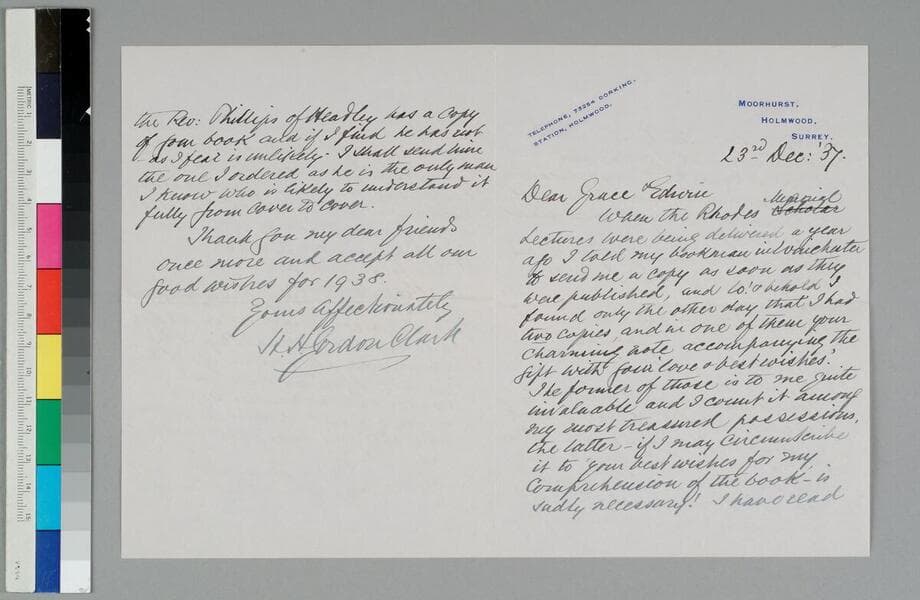 TELEPHONE, 73254 DORKING.
STATION, HOLMWOOD.
MOORHURST,
HOLMWOOD,
SURREY.
23rd Dec: '37.
Dear Grace & Edwin
When the Rhodes Memorial Scholar
Lectures were being delivered a year
ago I told my bookman in Manchester
to send me a copy as soon as they
were published, and lo! & behold I
found only the other day that I had
two copies, and in one of them your
charming note accompanying the
gift with your 'love & best wishes'.
The former of those is to me quite
invaluable and I count it among
my most treasured possessions,
the latter – if I may circumscribe
it to your best wishes for my
comprehension of the book – is
sadly necessary! I have read
the Rev: Phillips of Headley has a copy
of your book and if I find he has not
as I fear is unlikely. I shall send him
the one I ordered as he is the only man
I know who is likely to understand it
fully from cover to cover.
Thank you my dear friends
once more and accept all our
good wishes for 1938.
Yours affectionately
H H Gordon Clark